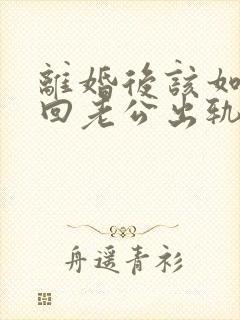 離婚後該如
回老公出軌
舟遥青衫